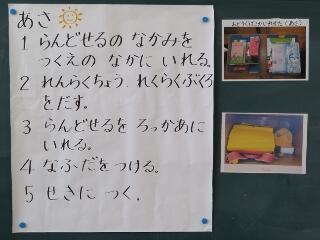 あさ
1 らんどせるの なかみを
つくえの なかに いれる。
2 れんらくちょう、れくらくぶくろ
をだす。
3 らんどせるを ろっかあに
いれる。
4 なふだをつける。
5 せきに つく.